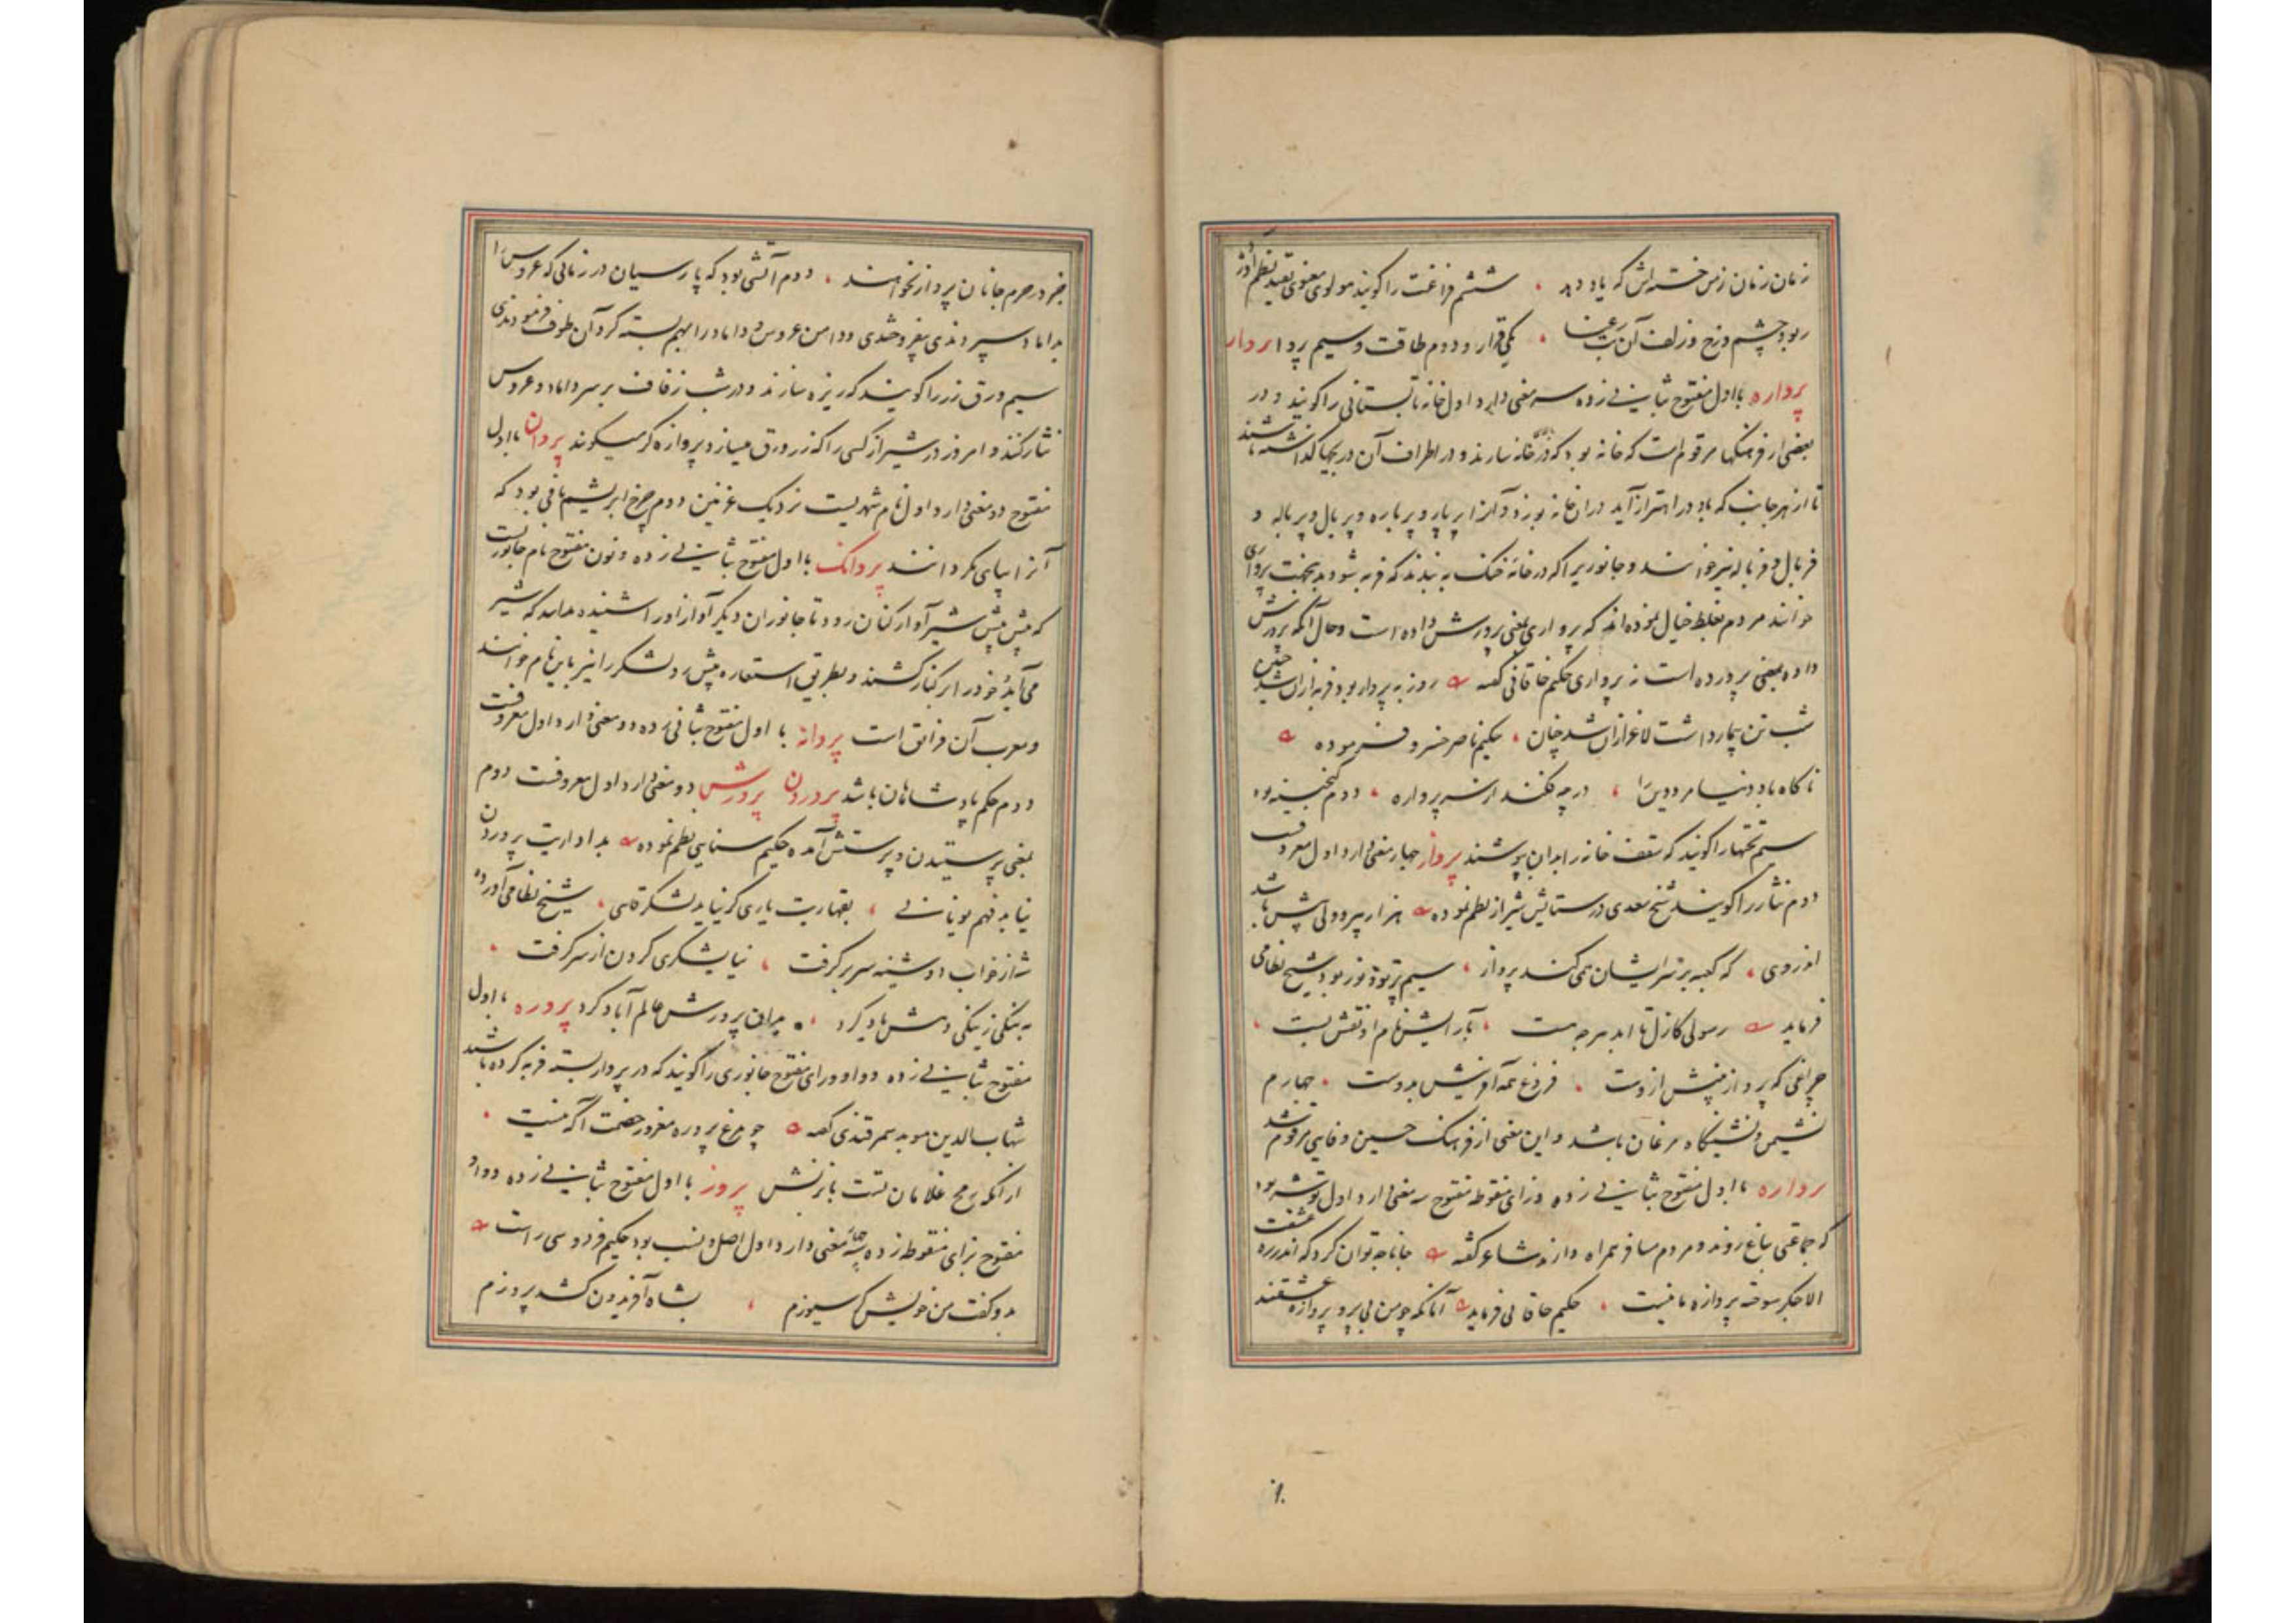 زمان زمان زمن خسته‌اش که یاد دهد ، ششم فراغت را گویند مولوی معنوی بقید نظم آورد
ربود چشم و رخ و زلف آن بت رعنا ، یکی قرار و دوم طاقت و سیم پروا پروار
پرواره با اول مفتوح بثانی زده سه معنی دارد اول خانه تابستانی را گویند و در
بعضی از فرهنگها مرقوم است که خانه بود که در خانه سازند و در اطراف آن دریچها گذاشته باشند
تا از هر جانب که باد در اهتزاز آید در آن خانه بوزد و آنرا پربار و پرباره و پربال و پرباله و
فربال و فرباله نیز خوانند و جانوریرا که در خانه خنک به بندند که فربه شود بدینجهت پرواری
خوانند مردم بغلط خیال نموده‌اند که پرواری بمعنی پرورش داده است و حال آنکه پرورش
داده بمعنی پرورده است نه پرواری حکیم خاقانی گفته روز به پروار بود فربه از آن شد چنین
شب تن بیمار داشت لاغر از آن شد چنان ، حکیم ناصر خسرو فرموده
ناگاه باد دنیا مر دین را ، در چه فکند از سر پرواره ، دوم گنجینه بود
سیم تختها را گویند که سقف خانه را بدان پوشند پرواز چهار معنی دارد اول معروفست
دوم نثار را گویند شیخ سعدی در ستایش شیراز نظم نموده هزار پیر و ولی بیش باشد
اندر وی ، که کعبه بر سر ایشان همی کند پرواز ، سیم پرتو و نور بود شیخ نظامی
فرماید رسولی کازل تا ابد هر چه هست ، بآرایش نام او نقش بست ،
چراغی که پرواز بینش ازوست ، فروغ همه آفرینش بدوست ، چهارم
نشیمن و نشستگاه مرغان باشد و این معنی از فرهنگ حسین وفایی مرقوم شد
پروازه با اول مفتوح بثانی زده و زای منقوطه مفتوح سه معنی دارد اول توشه بود
که جماعتی بباغ روند و مردم مسافر همراه دارند شاعر گفته جانا چه توان کرد که اندر ره عشقت
الا جگر سوخته پروازه ما نیست ، حکیم خاقانی فرماید آنانکه چو من بی پر و پروازه عشقند
جز در حرم جانان پرواز نخواهند ، دوم آتشی بود که پارسیان در زمانی که عروس را
بداماد سپردندی بفروختندی و دامن عروس و داماد را بهم بسته گرد آن طوف فرمودندی
سیم ورق زر را گویند که ریزه سازند و در شب زفاف بر سر داماد و عروس
نثار کنند و امروز در شیراز کسی را که زر ورق میسازد پروازه گر میگویند پروان با اول
مفتوح دو معنی دارد اول نام شهریست نزدیک غزنین دوم چرخ ابریشم تابی بود که
آنرا بپای گردانند پروانک با اول مفتوح بثانی زده و نون مفتوح نام جانوریست
که پیش پیش شیر آواز کنان رود تا جانوران دیگر آواز او را شنیده بدانند که شیر
می آید خود را بر کنار کشند و بطریق استعاره پیش رو لشکر را نیز باین نام خوانند
و معرب آن فرانق است پروانه با اول مفتوح بثانی زده دو معنی دارد اول معروفست
دوم حکم پادشاهان باشد پروردن پرورش دو معنی دارد اول معروفست دوم
بمعنی پرستیدن و پرستش آمده حکیم سنایی نظم نموده بداداریت پروردن
نیاید فهم یونانی ، بقهاریت یاری گر نیاید لشکر قاسی ، شیخ نظامی آورده
شه از خواب دوشینه سر بر گرفت ، نیایشگری کردن از سر گرفت ،
به نیکی ز نیکی دهش یاد کرد ، بدان پرورش عالم آباد کرد پروره با اول
مفتوح بثانی زده و واو و رای مفتوح جانوری را گویند که در پروار بسته فربه کرده باشند
شهاب الدین موید سمرقندی گفته چو مرغ پروره مغرور خصمت آگه نیست ،
از آنکه رمح غلامان تست بابزنش پروز با اول مفتوح بثانی زده و واو
مفتوح بزای منقوطه زده پنج معنی دارد اول اصل و نسب بود حکیم فردوسی راست
بدو گفت من خویش گرسیوزم ، بشاه آفریدون کشد پروزم